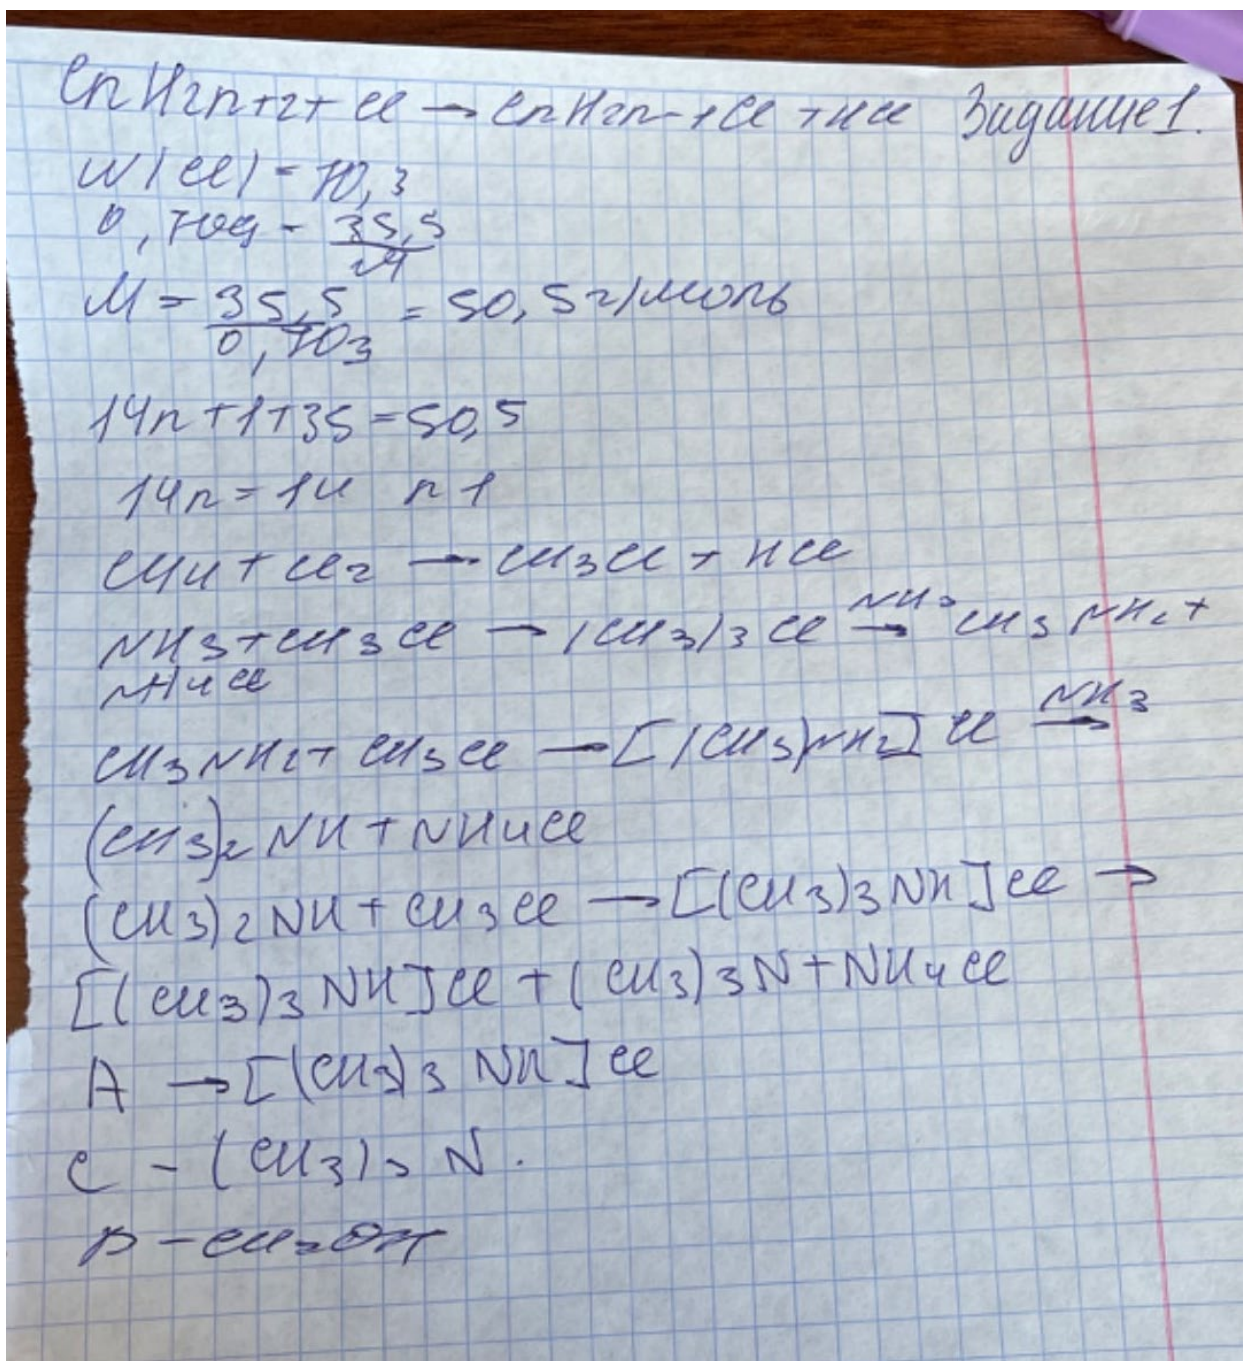 CnH2n+2 + Cl → CnH2n+1Cl + HCl Задание 1.
W(Cl) = 70,3
0,703 = 35,5
M
M = 35,5 = 50,5 г/моль
0,703
14n+1+35=50,5
14n=14 n 1
CH4 + Cl2 → CH3Cl + HCl
NH3+CH3Cl → (CH3)3Cl NH3→ CH3NH2+
NH4Cl
CH3NH2+ CH3Cl → [(CH3)NH2]Cl NH3→
(CH3)2NH + NH4Cl
(CH3)2NH + CH3Cl → [(CH3)3NH]Cl →
[(CH3)3NH]Cl + (CH3)3N + NH4Cl
A → [(CH3)3NH]Cl
C - (CH3)3N.
D - CH3OH